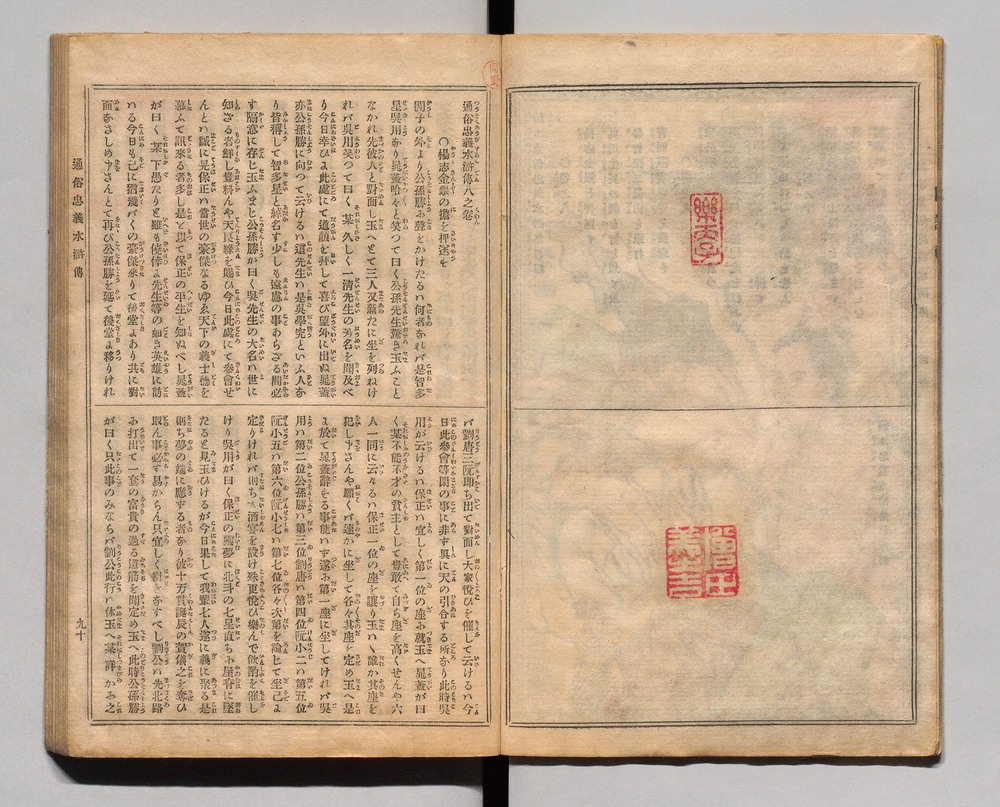 通俗忠義水滸傳八之卷
○楊志金銀の擔を押送を
閣子の外より公孫勝お聲をかけたるハ何者なれバ是智多
星呉用なり晁蓋哈々と笑つて曰く公孫先生驚き玉ふこと
なかれ先彼人と對面し玉へとて三人又新たに坐を列ねけ
れバ呉用笑つて曰く某久しく一清先生の芳名を聞及べ
り今日幸ひよ此處にて道顔を拜して喜び望外に出ぬ晁蓋
亦公孫勝に向つて云けるハ道先生ハ是呉學究といふ人な
り皆稱して智多星と綽名す少しも遠慮の事わらざる間必
ず隔意に存じ玉ふまじ公孫勝が曰く呉先生の大名ハ世に
知ざる者鮮し豈料んや天良縁を賜ひ今日此處にて參會せ
んとハ誠に晁保正ハ當世の豪傑なるゆゑ天下の義士徳を
慕ふて訊來る者多し是を以て保正の平生を知ぬべし晁蓋
が曰く某下愚たりと雖も僥倖よ先生等の如き英雄に訪
ハる今日も已に猶幾バくの豪傑來りて後堂よあり共に對
面なさしめ申さんとて再び公孫勝を延て後堂よ移りけれ
バ劉唐三阮即ち出て對面し大家悅びを催して云けるハ今
日此參會等閑の事に非ず眞に天の引合する所なり此時呉
用が云けるハ保正ハ宜しく第一位の座お就玉へ晁蓋が曰
く某不能不才の貧主として豈敢て自ら座を高くせんや六
人一同に云々るハ保正一位の座を讓り玉ハヾ誰か其座を
犯し申さんや願くバ速かに坐して各々其座を定め玉へ是
よ於て晁蓋辭する事能ハず遂お第一座に坐してけれバ呉
用ハ第二位公孫勝ハ第三位劉唐ハ第四位阮小二ハ第五位
阮小五ハ第六位阮小七ハ第七位各々次第を論じて坐已よ
定りけれバ則ち酒宴を設け殊更悅び樂んで飲酌を催し
けり呉用が曰く保正の靈夢に北斗の七星直ちお屋脊に墜
たると見玉ひけるが今日果して我輩七人遂に義に聚る是
則ち夢の端に應ずる者なり彼十万貫誕辰の賀儀之を奪ひ
取ん事必ず易からん只宜しく計をなすべし劉公ハ先北路
お打出て一套の富貴の過る道筋を聞定め玉へ此時公孫勝
が曰く只此事のみならバ劉公此行ハ休玉へ某詳かお之
通俗忠義水滸傳
九十